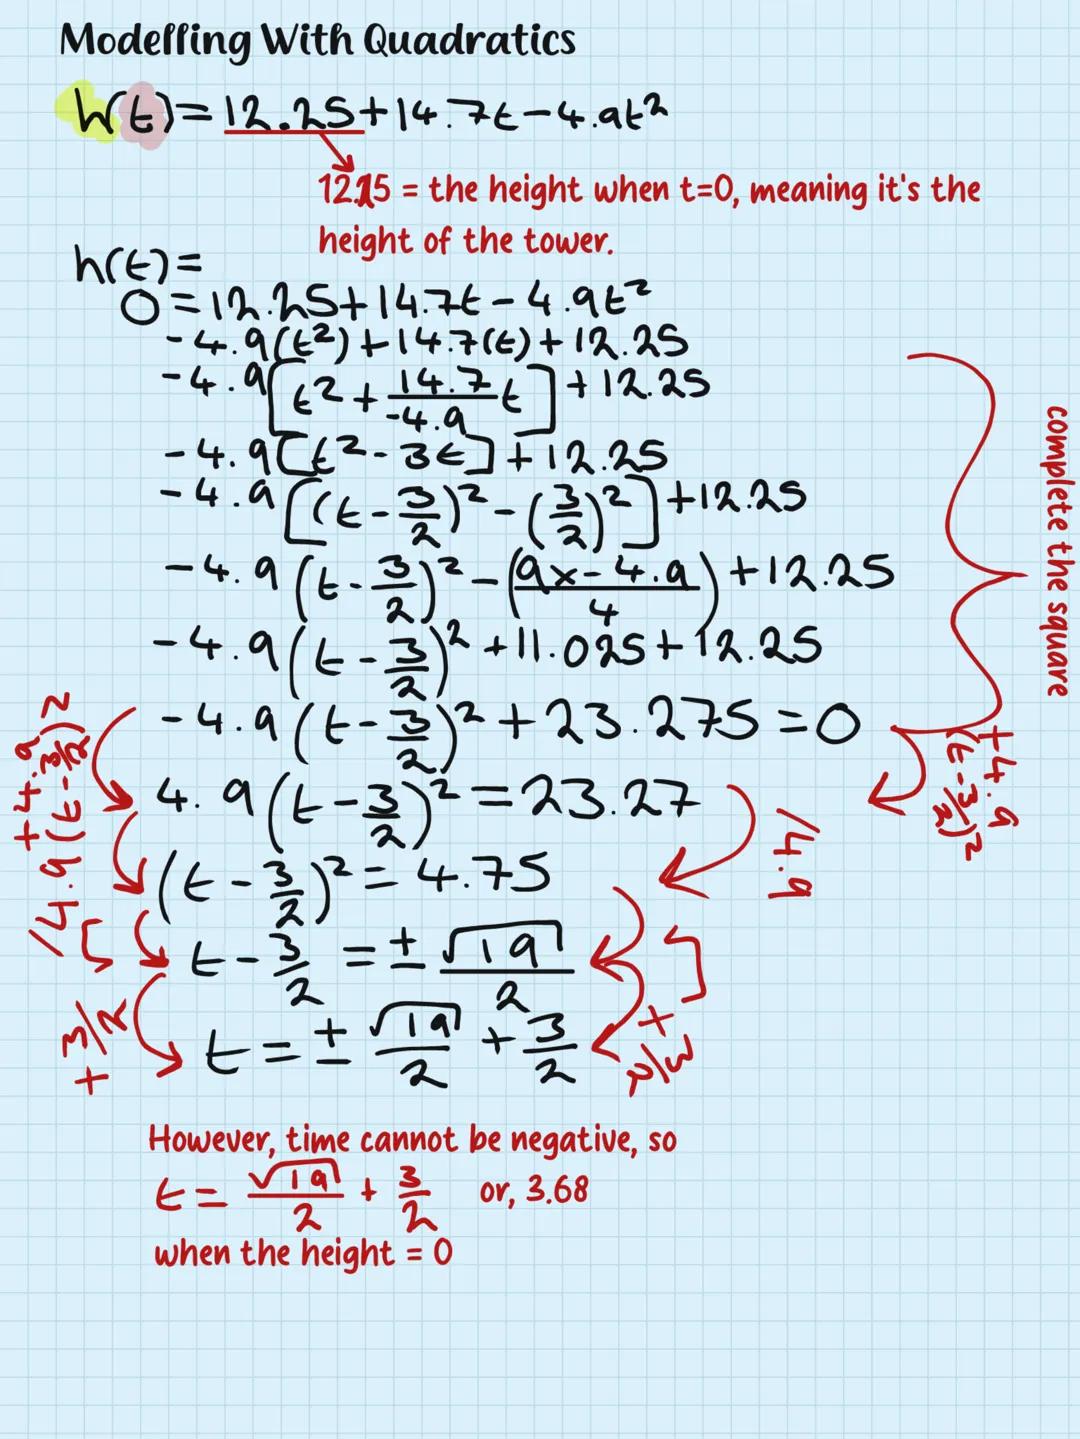 Modelling With Quadratics
h(t)=12.25+14.7t-4.9t²
12.25 = the height when t=0, meaning it's the
height of the tower.
h(t)=
0=12.25+14.7t-4.9t²
-4.9(t²)+14.7(t)+12.25
-4.9[t²+14.7/-4.9 t]+12.25
-4.9[t²-3t]+12.25
-4.9[(t-3/2)²-(3/2)²]+12.25
-4.9(t-3/2)²-(9x-4.9/4)+12.25
-4.9(t-3/2)²+11.025+12.25
-4.9(t-3/2)²+23.275=0
4.9(t-3/2)²=23.27
(t-3/2)²=4.75
t-3/2=±√19/2
t=±√19/2+3/2
complete the square
+4.9(t-3/2)²
/4.9
+3/2
+4.9(t-3/2)²
/4.9
+3/2
However, time cannot be negative, so
t=√19/2+3/2 or, 3.68
when the height = 0